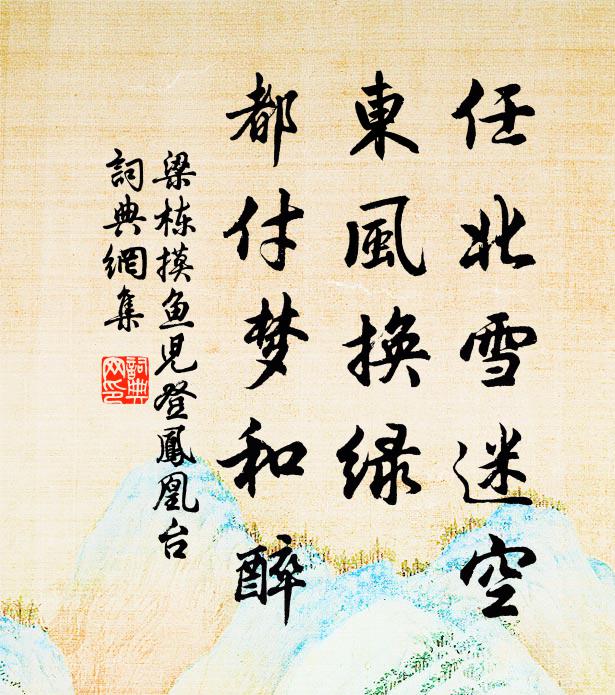 任北雪迷空
東風换绿
都付梦和醉
梁栋摸鱼児登鳳凰台
詞典網集
詞典网印